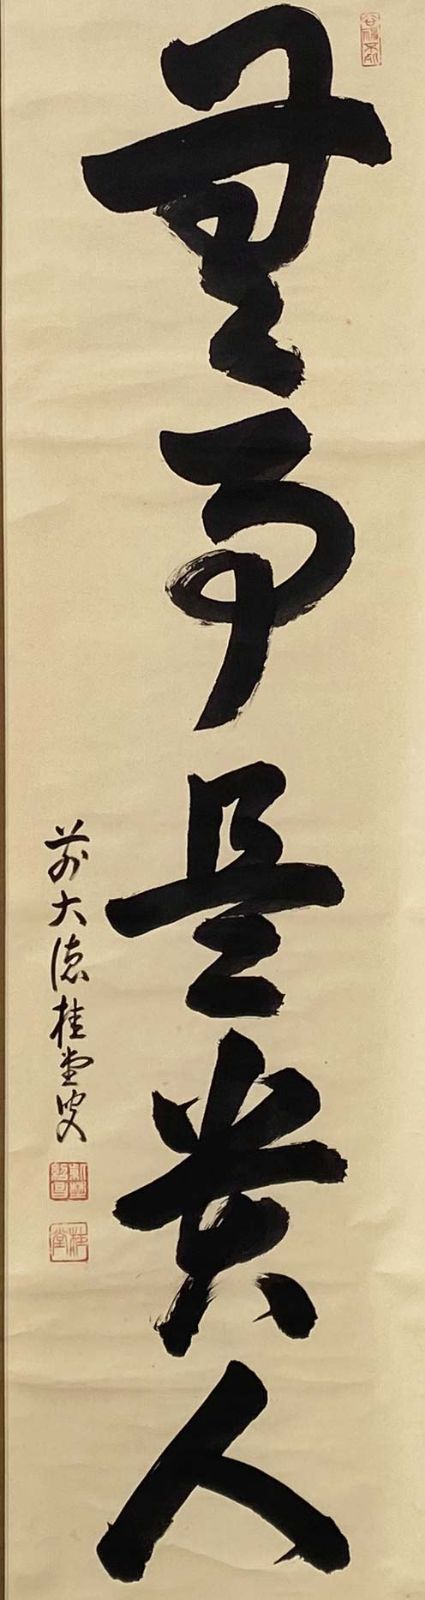 無事是貴人
前大徳桂堂叟